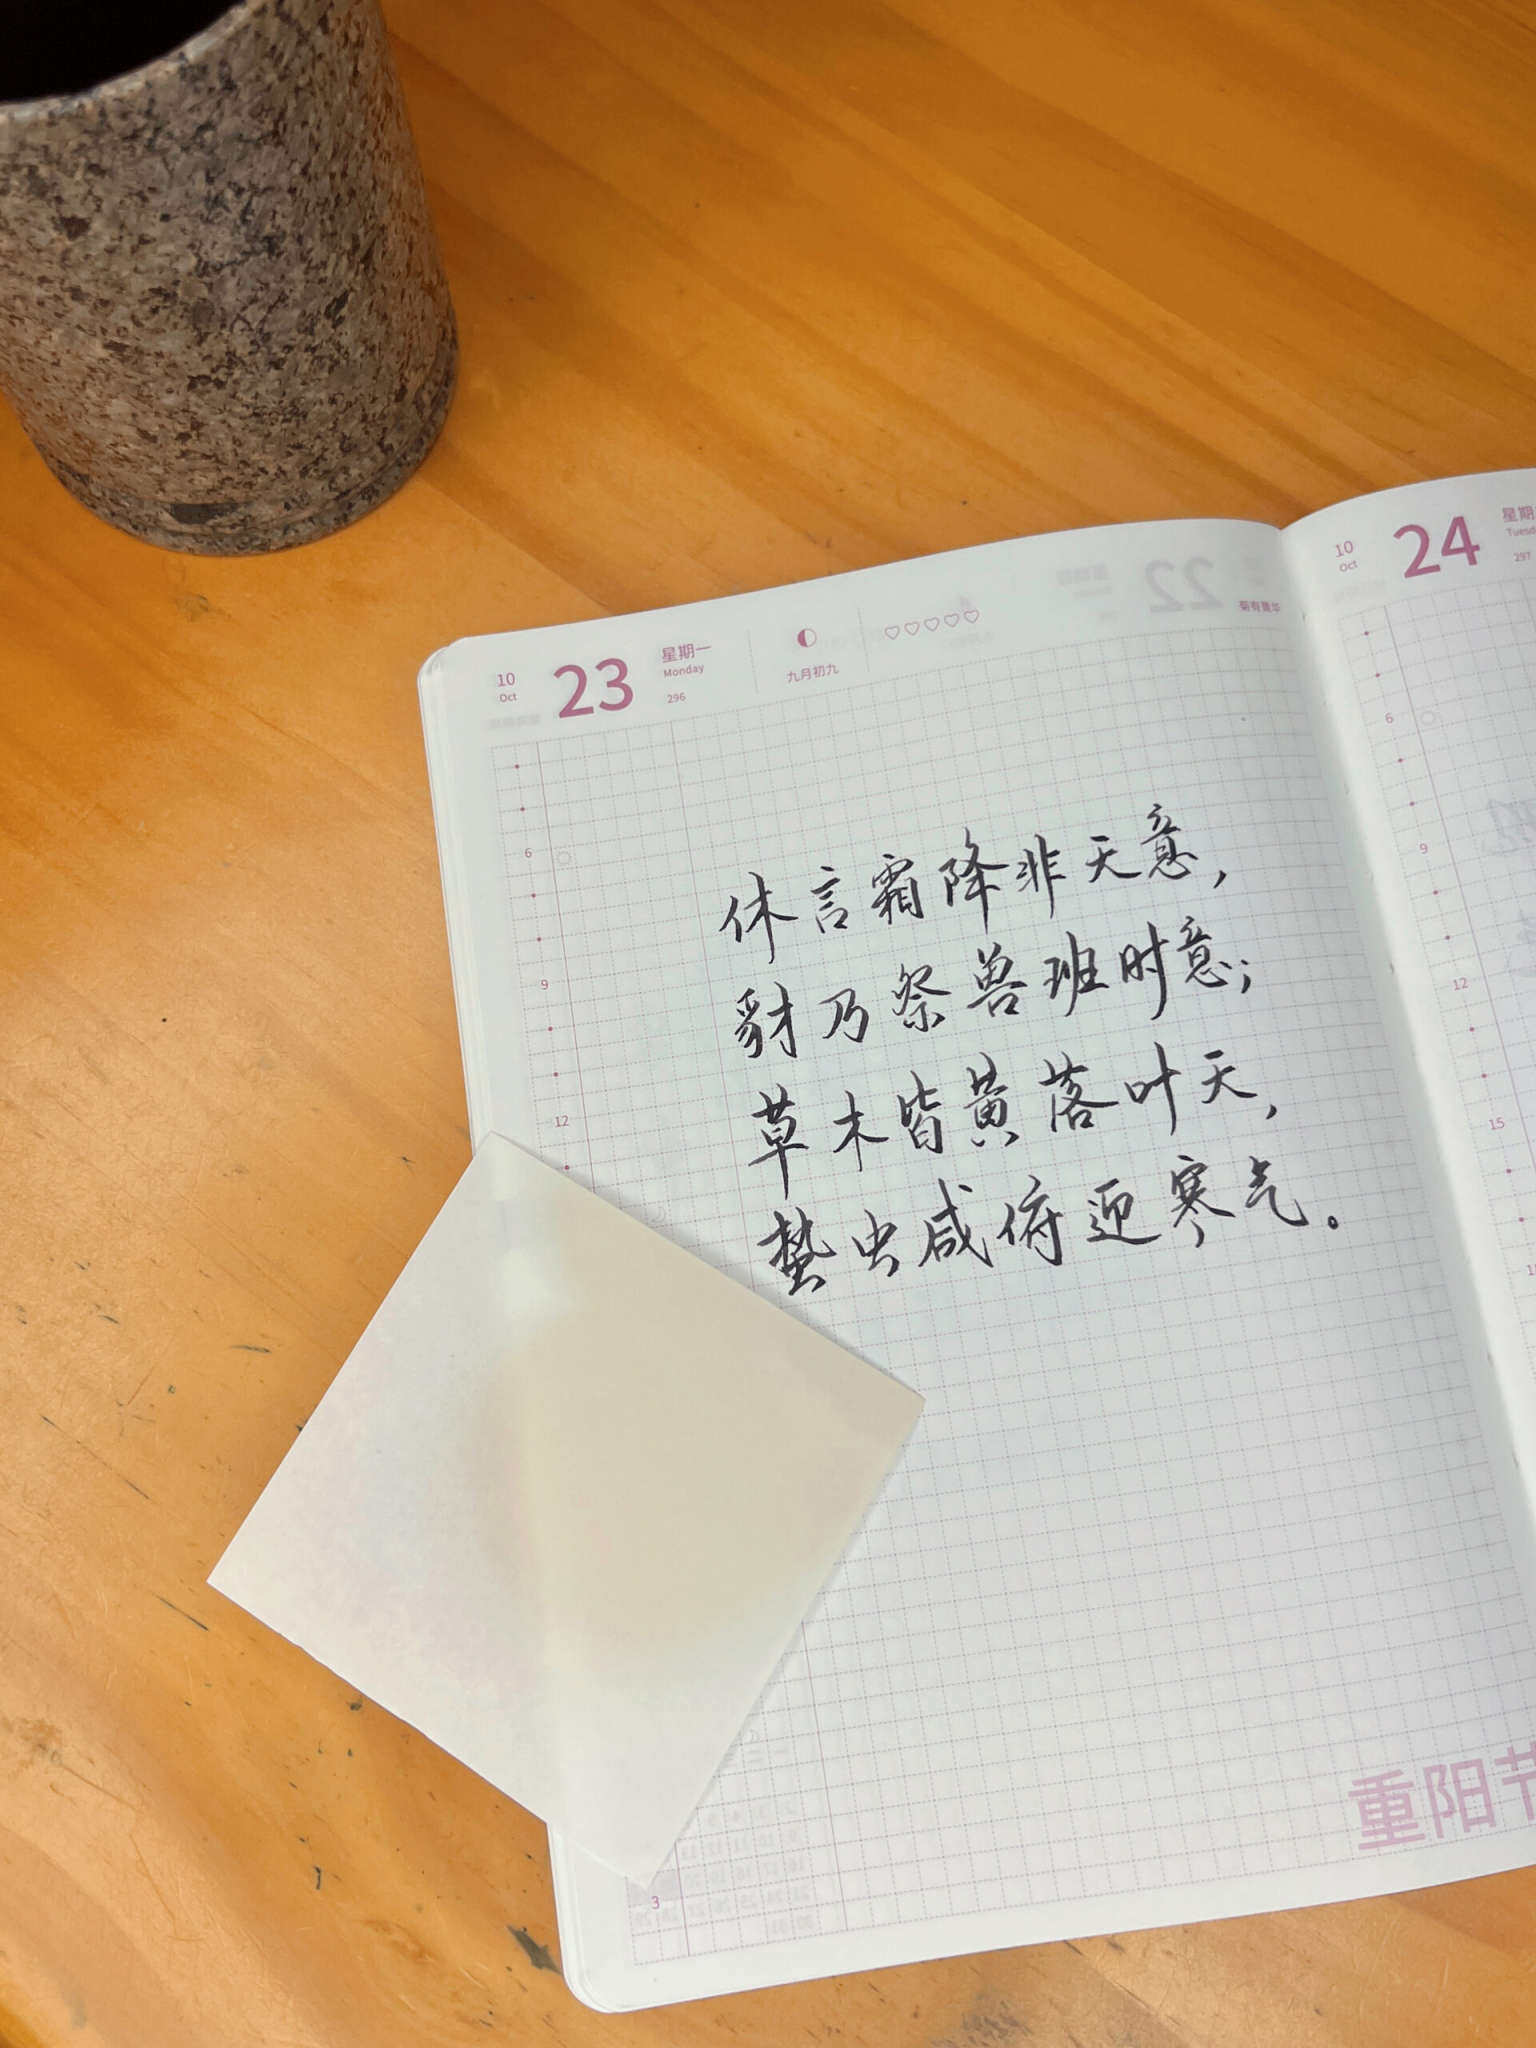 10
Oct
23
星期一
Monday
296
九月初九
菊有黄华
10
Oct
24
星期
297
6
9
12
3
休言霜降非天意，
豺乃祭兽班时意；
草木皆黄落叶天，
蛰虫咸俯迎寒气。
重阳节
6
9
12
15